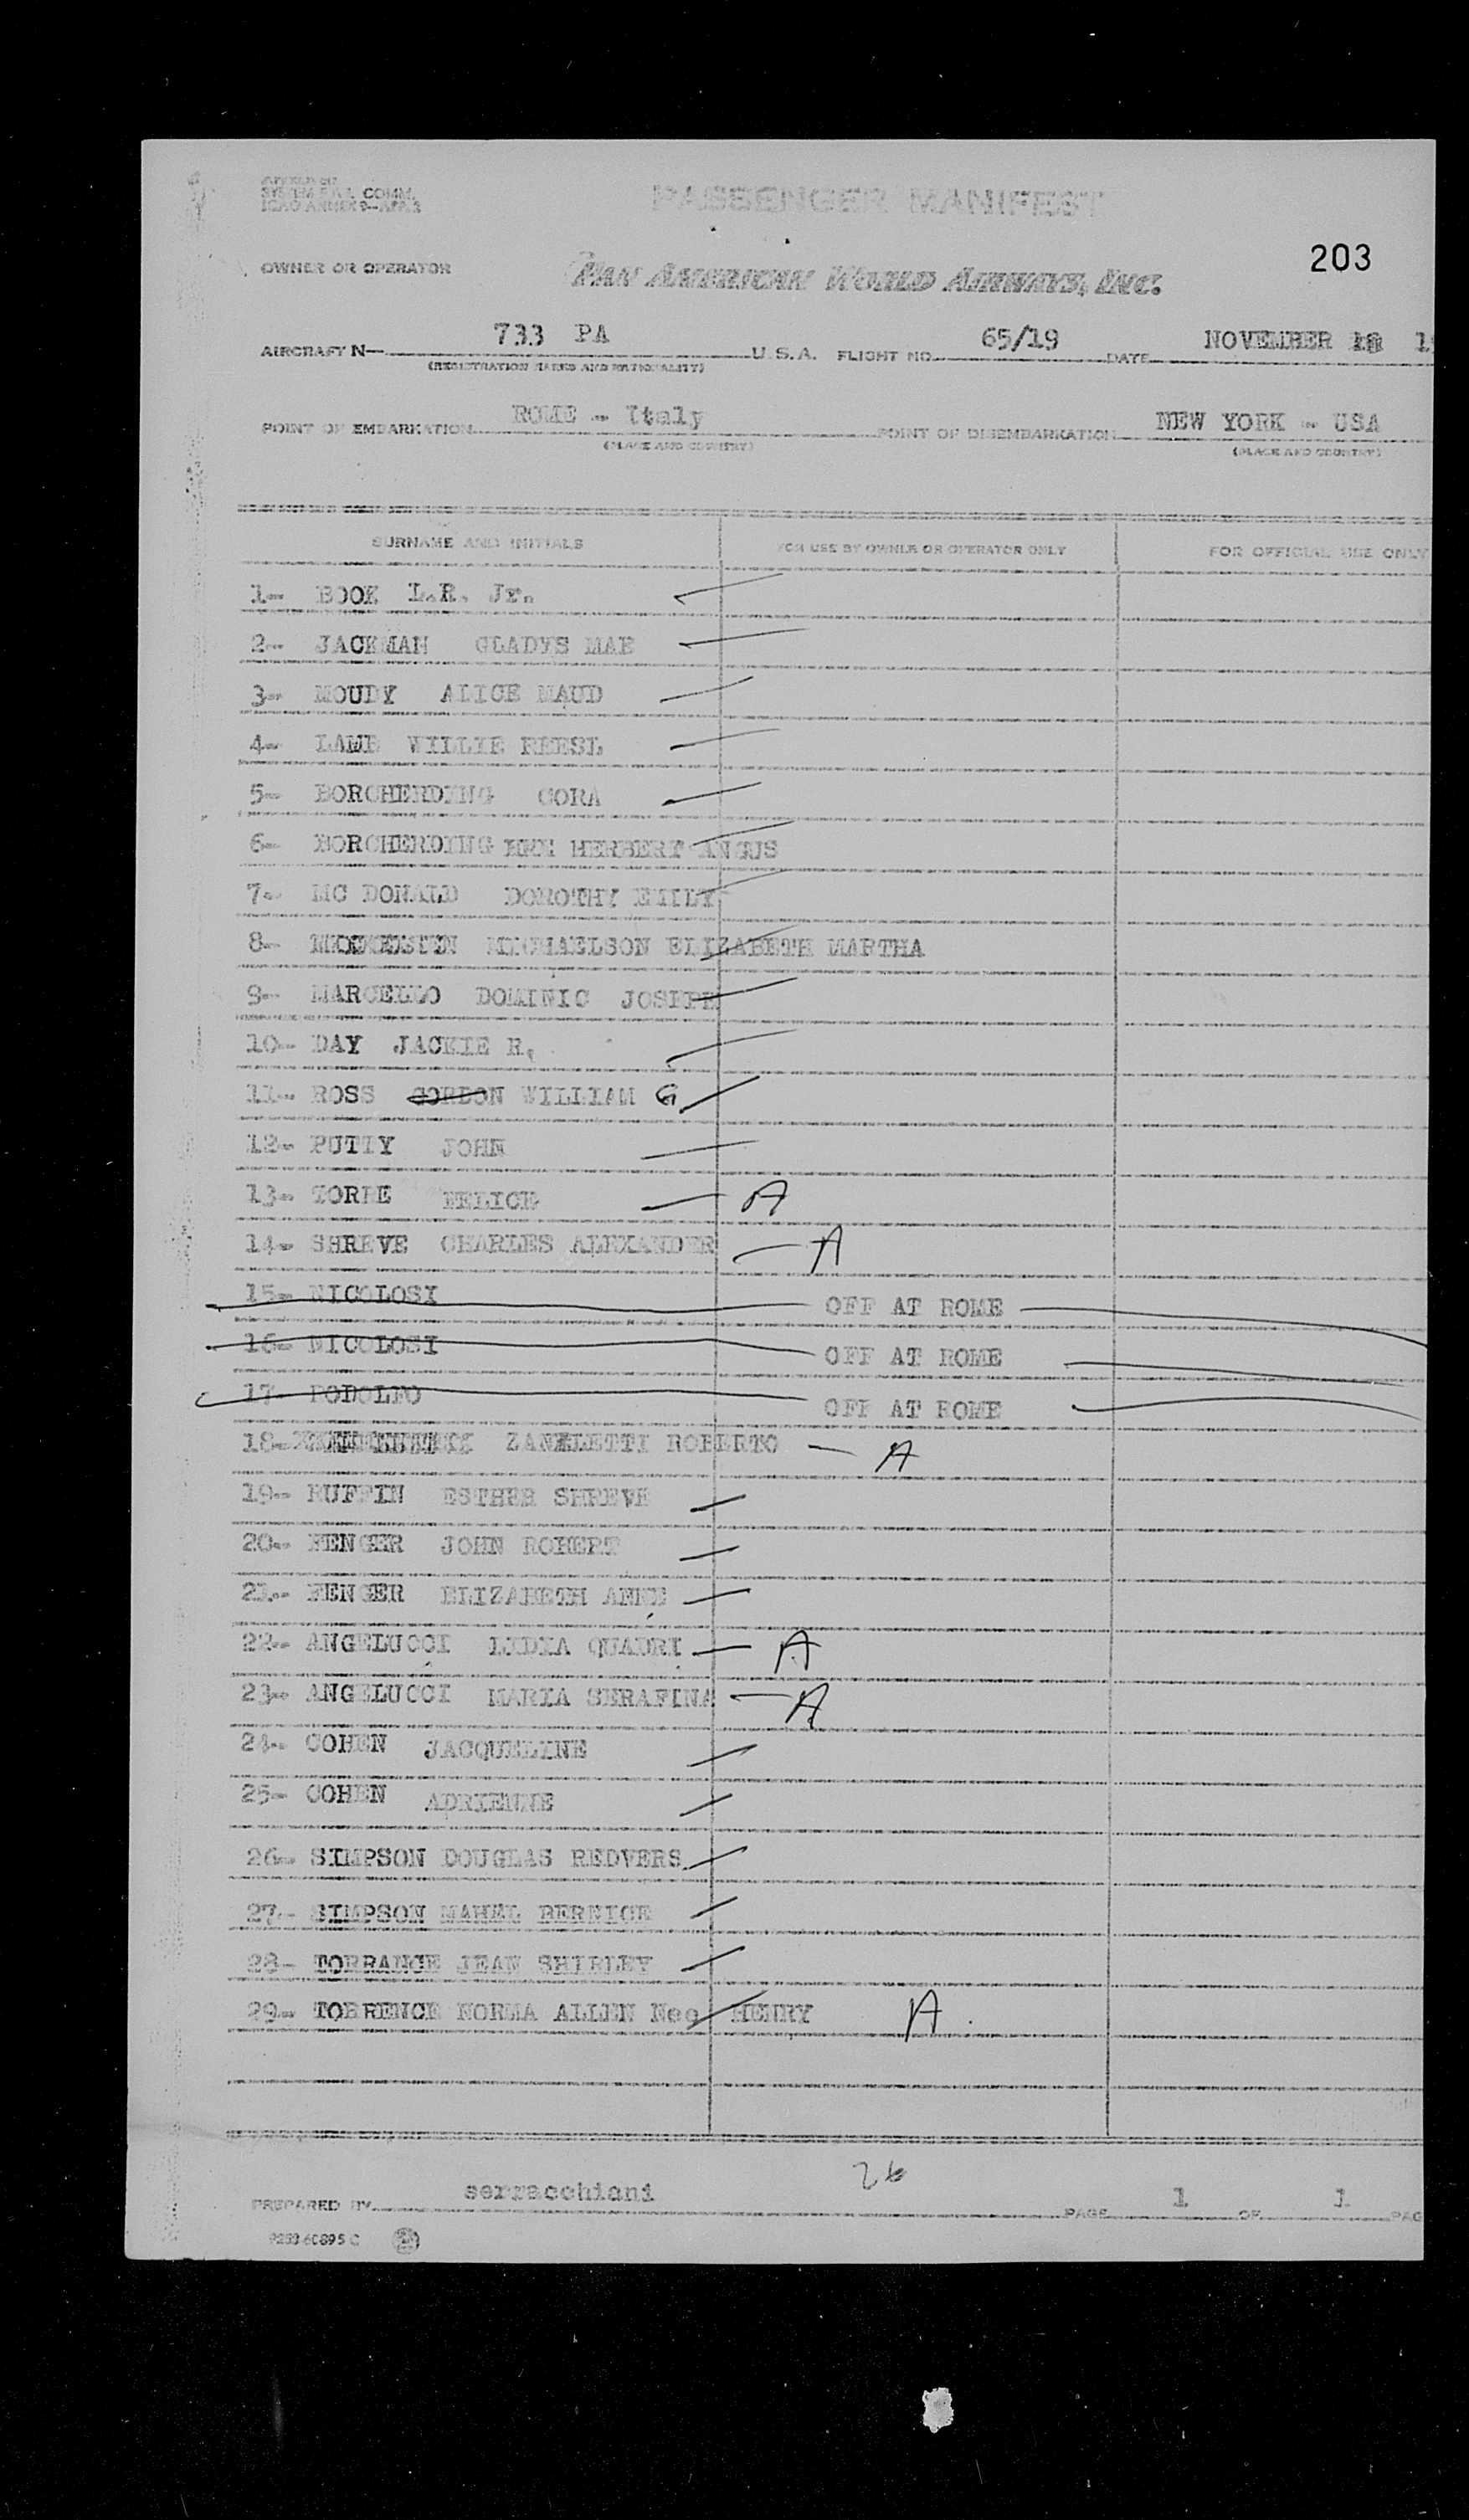 SYSTEM F.A.A. COMM.
ICAO ANNEX 9-APP. 3
PASSENGER MANIFEST
203
OWNER OR OPERATOR PAN AMERICAN WORLD AIRWAYS, INC.
AIRCRAFT N- 733 PA U.S.A. FLIGHT NO. 65/19 DATE NOVEMBER
(REGISTRATION MARKS AND NATIONALITY)
POINT OF EMBARKATION ROME - Italy POINT OF DISEMBARKATION NEW YORK - USA
(PLACE AND COUNTRY) (PLACE AND COUNTRY)
SURNAME AND INITIALS FOR USE BY OWNER OR OPERATOR ONLY FOR OFFICIAL USE ONLY
1- BOOK L.R. Jr.
2- JACKMAN GLADYS MAE
3- MOUDY ALICE MAUD
4- LAMB WILLIE REESE
5- BORCHERDING CORA
6- BORCHERDING HERBERT ANGUS
7- MC DONALD DOROTHY EMILY
8- MICHAELSON ELIZABETH MARTHA
9- MARCELLO DOMINIC JOSEPH
10- DAY JACKIE R.
11- ROSS GORDON WILLIAM G
12- PUTTY JOHN
13- TORRE FELICE A
14- SHREVE CHARLES ALEXANDER A
15- NICOLOSI OFF AT ROME
16- NICOLOSI OFF AT ROME
17- PODOLFO OFF AT ROME
18- ZANELETTI ROBERTO A
19- RUFFIN ESTHER SHREVE
20- FENGER JOHN ROBERT
21- FENGER ELIZABETH ANNE
22- ANGELUCCI LIDIA QUADRI A
23- ANGELUCCI MARIA SERAFINA A
24- COHEN JACQUELINE
25- COHEN ADRIENNE
26- SIMPSON DOUGLAS REDVERS
27- SIMPSON MABEL BERNICE
28- TORRANCE JEAN SHIRLEY
29- TORRENCE NORMA ALLEN Nee HENRY A
26
PREPARED BY serracchiani PAGE 1 OF 1 PAG